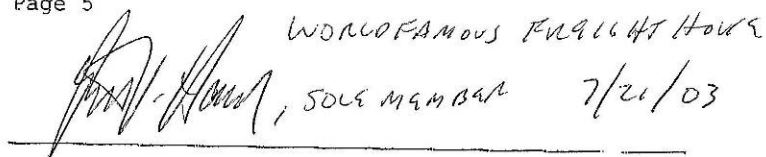 Page 5
WORLDFAMOUS FREIGHT HOUSE
, SOLE MEMBER 7/21/03